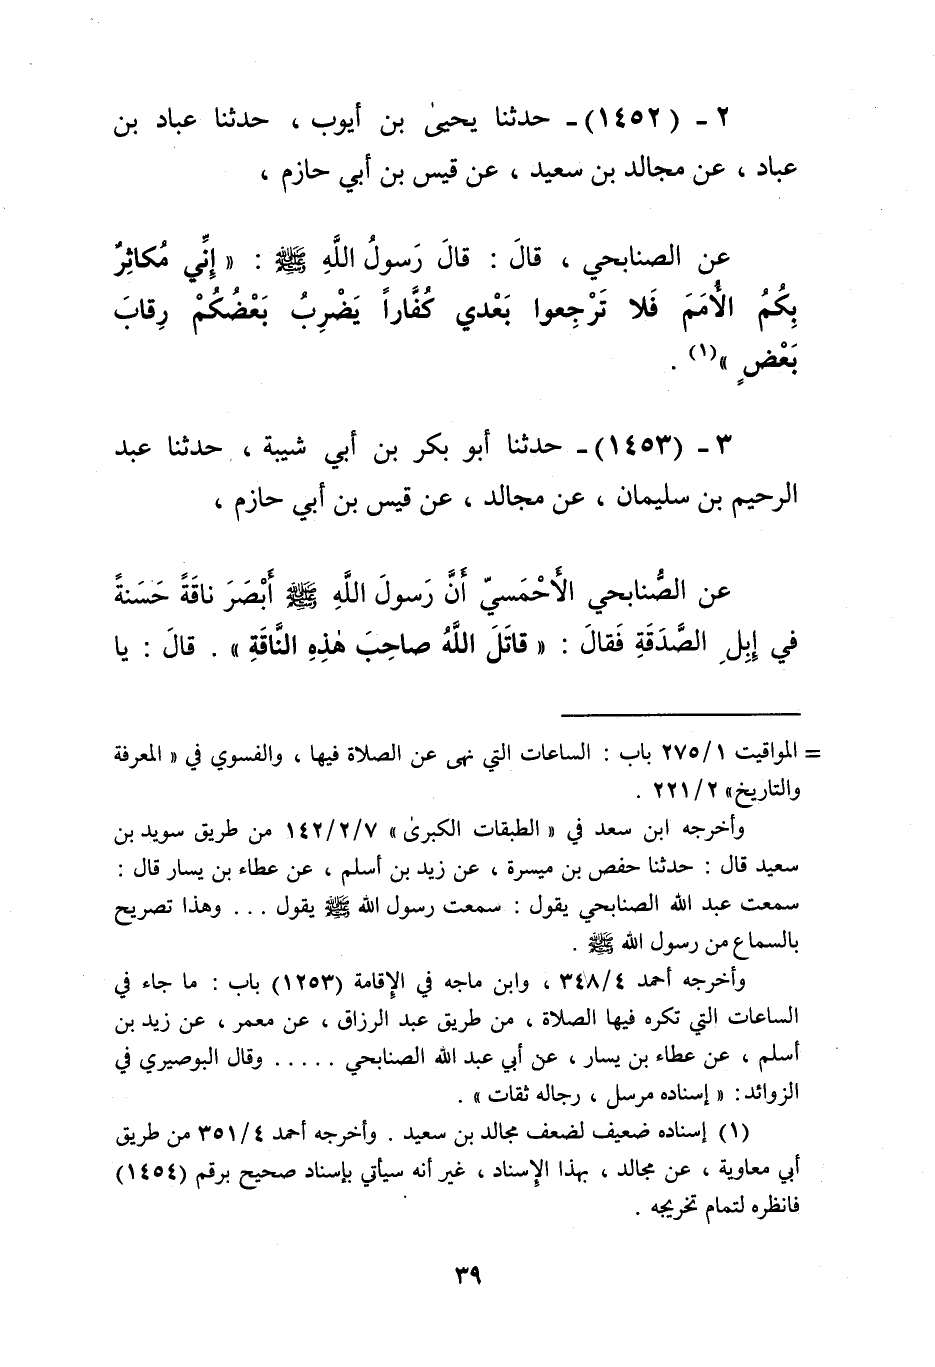 ٢ - (١٤٥٢) - حدثنا يحيىٰ بن أيوب ، حدثنا عباد بن
عباد ، عن مجالد بن سعيد ، عن قيس بن أبي حازم ،
عن الصنابحي ، قالَ : قالَ رَسولُ اللَّهِ ﷺ : « إِنِّي مُكاثِرٌ
بِكُمُ الأُمَمَ فَلا تَرْجِعوا بَعْدي كُفَّاراً يَضْرِبُ بَعْضُكُمْ رِقابَ
بَعْضٍ »(١) .
٣ - (١٤٥٣) - حدثنا أبو بكر بن أبي شيبة ، حدثنا عبد
الرحيم بن سليمان ، عن مجالد ، عن قيس بن أبي حازم ،
عن الصُّنابحي الأَحْمَسيّ أَنَّ رَسولَ اللَّهِ ﷺ أَبْصَرَ ناقَةً حَسَنةً
في إِبِلِ الصَّدَقَةِ فَقالَ : « قاتَلَ اللَّهُ صاحِبَ هٰذِهِ النَّاقَةِ » . قالَ : يا
= المواقيت ١/ ٢٧٥ باب : الساعات التي نهى عن الصلاة فيها ، والفسوي في « المعرفة
والتاريخ» ٢/ ٢٢١ .
وأخرجه ابن سعد في « الطبقات الكبرىٰ » ٧/ ٢/ ١٤٢ من طريق سويد بن
سعيد قال : حدثنا حفص بن ميسرة ، عن زيد بن أسلم ، عن عطاء بن يسار قال :
سمعت عبد الله الصنابحي يقول : سمعت رسول الله ﷺ يقول ... وهذا تصريح
بالسماع من رسول الله ﷺ .
وأخرجه أحمد ٤/ ٣٤٨ ، وابن ماجه في الإِقامة (١٢٥٣) باب : ما جاء في
الساعات التي تكره فيها الصلاة ، من طريق عبد الرزاق ، عن معمر ، عن زيد بن
أسلم ، عن عطاء بن يسار ، عن أبي عبد الله الصنابحي ..... وقال البوصيري في
الزوائد: « إسناده مرسل ، رجاله ثقات » .
(١) إسناده ضعيف لضعف مجالد بن سعيد . وأخرجه أحمد ٤/ ٣٥١ من طريق
أبي معاوية ، عن مجالد ، بهذا الإِسناد ، غير أنه سيأتي بإسناد صحيح برقم (١٤٥٤)
فانظره لتمام تخريجه .
٣٩